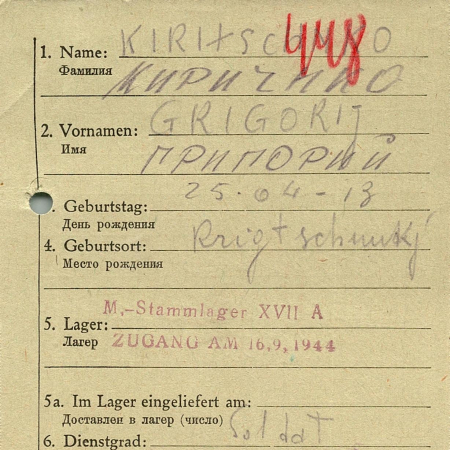 448
1. Name: KIRITSCHENKO
Фамилия
КИРИЧИНКО
2. Vornamen: GRIGORIJ
Имя
ПРИПОРИЙ
25.04-13
. Geburtstag:
День рождения
4. Geburtsort:
Место рождения
M.-Stammlager XVII A
5. Lager:
Лагер ZUGANG AM 16,9,1944
5a. Im Lager eingeliefert am:
Доставлен в лагер (число)
6. Dienstgrad: Soldat